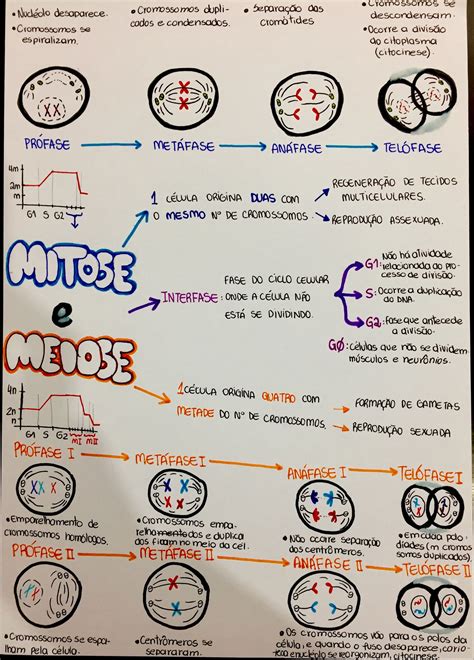 • Nucléolo desaparece.
• Cromossomos se
espiralizam.
• Cromossomos dupli-
cados e condensados.
• Separação das
cromátides
• Cromossomos se
descondensam.
• Ocorre a divisão
do citoplasma
(citocinese)
PRÓFASE
METÁFASE
ANÁFASE
TELÓFASE
4n
2n
n
G1 S G2
1 CÉLULA ORIGINA DUAS COM
O MESMO Nº DE CROMOSSOMOS.
REGENERAÇÃO DE TECIDOS
MULTICELULARES.
REPRODUÇÃO ASSEXUADA.
MITOSE
e
MEIOSE
INTERFASE:
FASE DO CICLO CELULAR
ONDE A CÉLULA NÃO
ESTÁ SE DIVIDINDO.
G1: Não há atividade
relacionada ao pro-
cesso de divisão.
S: Ocorre a duplicação
do DNA.
G2: fase que antecede
a divisão.
G0: células que não se dividem
músculos e neurônios.
4n
2n
n
G1 S G2 MI MII
1 CÉLULA ORIGINA QUATRO COM
METADE DO Nº DE CROMOSSOMOS
FORMAÇÃO DE GAMETAS
REPRODUÇÃO SEXUADA
PRÓFASE I
METÁFASE I
ANÁFASE I
TELÓFASE I
• Emparelhamento de
cromossomos homólogos.
• Cromossomos empa-
relhamentados e duplica
dos ficam no meio da cel.
• Não ocorre separação
dos centrômeros.
• Em cada polo
(n cromos
somos duplicados).
PRÓFASE II
METÁFASE II
ANÁFASE II
TELÓFASE II
• Cromossomos se espa-
lham pela célula.
• Centrômeros se
separaram.
• Os cromossomos vão para os polos da
célula, e quando o fuso desaparece, cario
teca e nucléolo se reorganizam, citocinese.